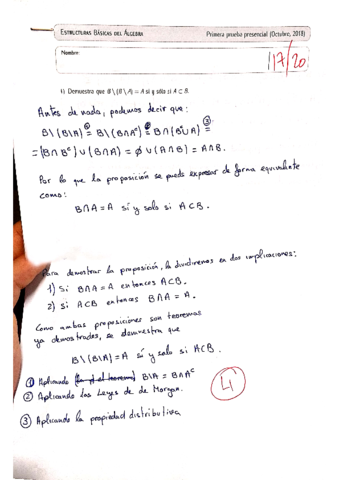 ESTRUCTURAS BÁSICAS DEL ÁLGEBRA Primera prueba presencial (Octubre, 2018)
Nombre:
17/20
1) Demuestra que B \ (B \ A) = A si y sólo si A ⊂ B.
Antes de nada, podemos decir que:
B\(B\A) ①= B\(B∩Aᶜ) ②= B∩(Bᶜ∪A) ③=
= (B∩Bᶜ)∪(B∩A) = ∅ ∪ (A∩B) = A∩B.
Por lo que la proposición se puede expresar de forma equivalente
como:
B∩A = A sí y solo si A⊂B.
Para demostrar la proposición, la dividiremos en dos implicaciones:
1) Si B∩A = A entonces A⊂B.
2) Si A⊂B entonces B∩A = A.
Como ambas proposiciones son teoremas
ya demostrados, se demuestra que
B\(B\A) = A sí y solo si A⊂B.
① Aplicando B\A = B∩Aᶜ
② Aplicando las Leyes de de Morgan.
③ Aplicando la propiedad distributiva
4